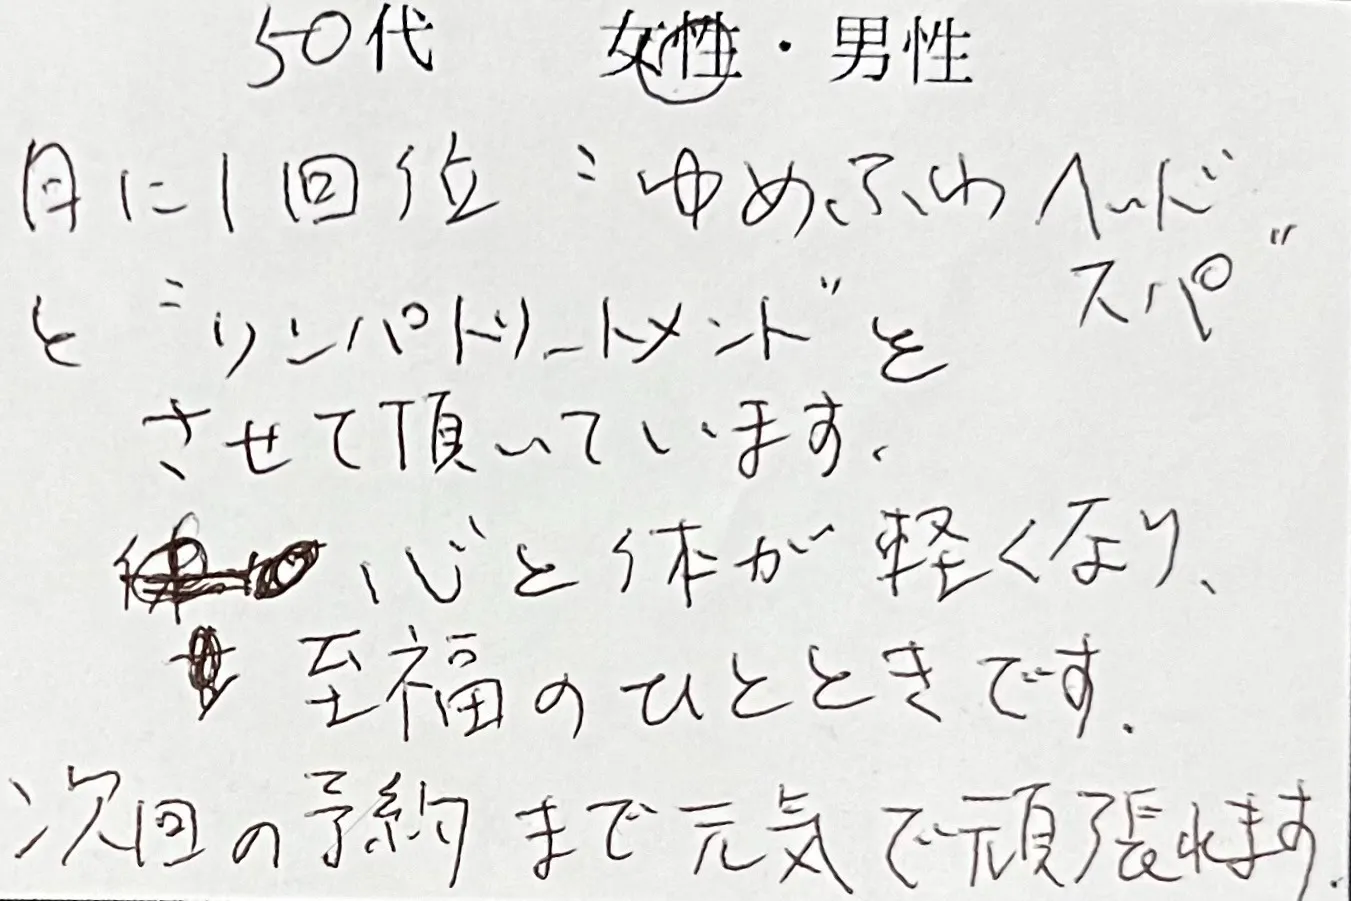 50代 女性・男性
月に1回位 “ゆめふわヘッド
スパ”
と “リンパトリートメント”を
させて頂いています。
心と体が軽くなり、
至福のひとときです.
次回の予約まで元気で頑張れます.